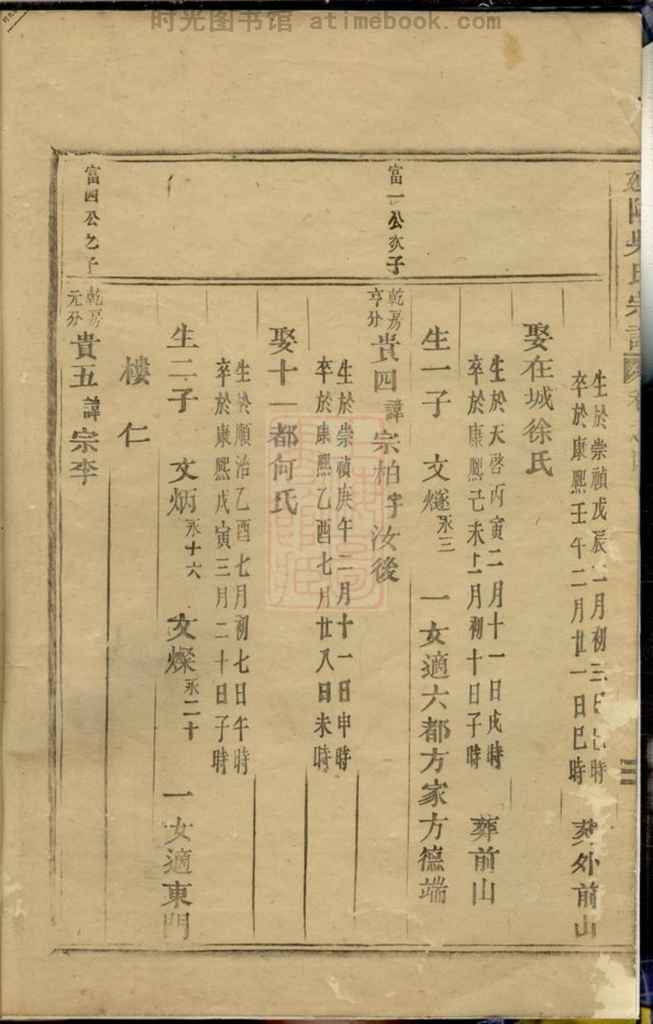 时光图书馆 atimebook.com
生於崇禎戊辰二月初三日巳時
卒於康熙壬午二月廿一日巳時 葬外前山
娶在城徐氏
生於天啓丙寅二月十一日戌時
卒於康熙己未十二月初十日子時 葬前山
生一子 文燧永三 一女適六都方家方德端
富一公次子
乾房亨分 貴四諱宗柏字汝後
生於崇禎庚午二月十一日申時
卒於康熙乙酉七月廿八日未時
娶十一都何氏
生於順治乙酉七月初七日午時
卒於康熙戊寅三月二十日子時
生二子 文炳永十六 文燦永二十 一女適東門
樓仁
富四公之子
乾房元分 貴五諱宗李